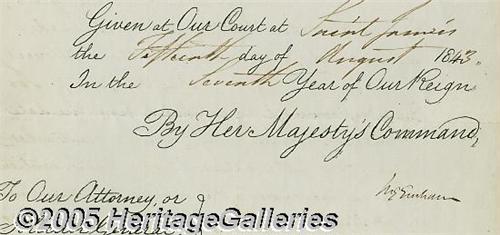 Given at Our Court at Saint James's
the Fifteenth day of August 1843.
In the Seventh Year of Our Reign
By Her Majesty's Command,
To Our Attorney, or
General
©2005 HeritageGalleries